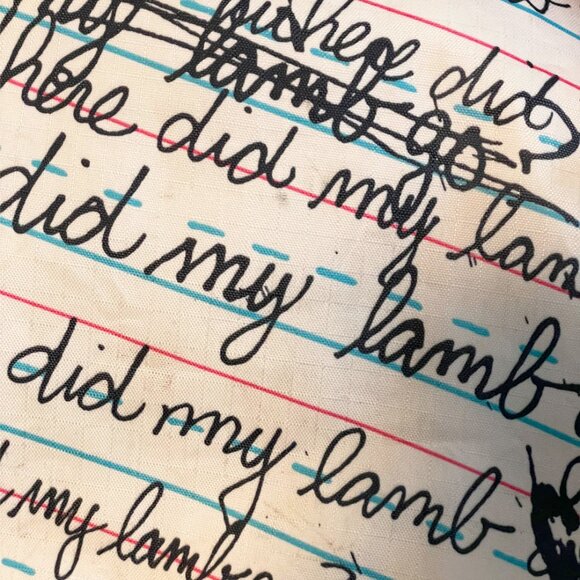 where did
my lamb go?
here did my lam
did my lamb
did my lamb
my lamb